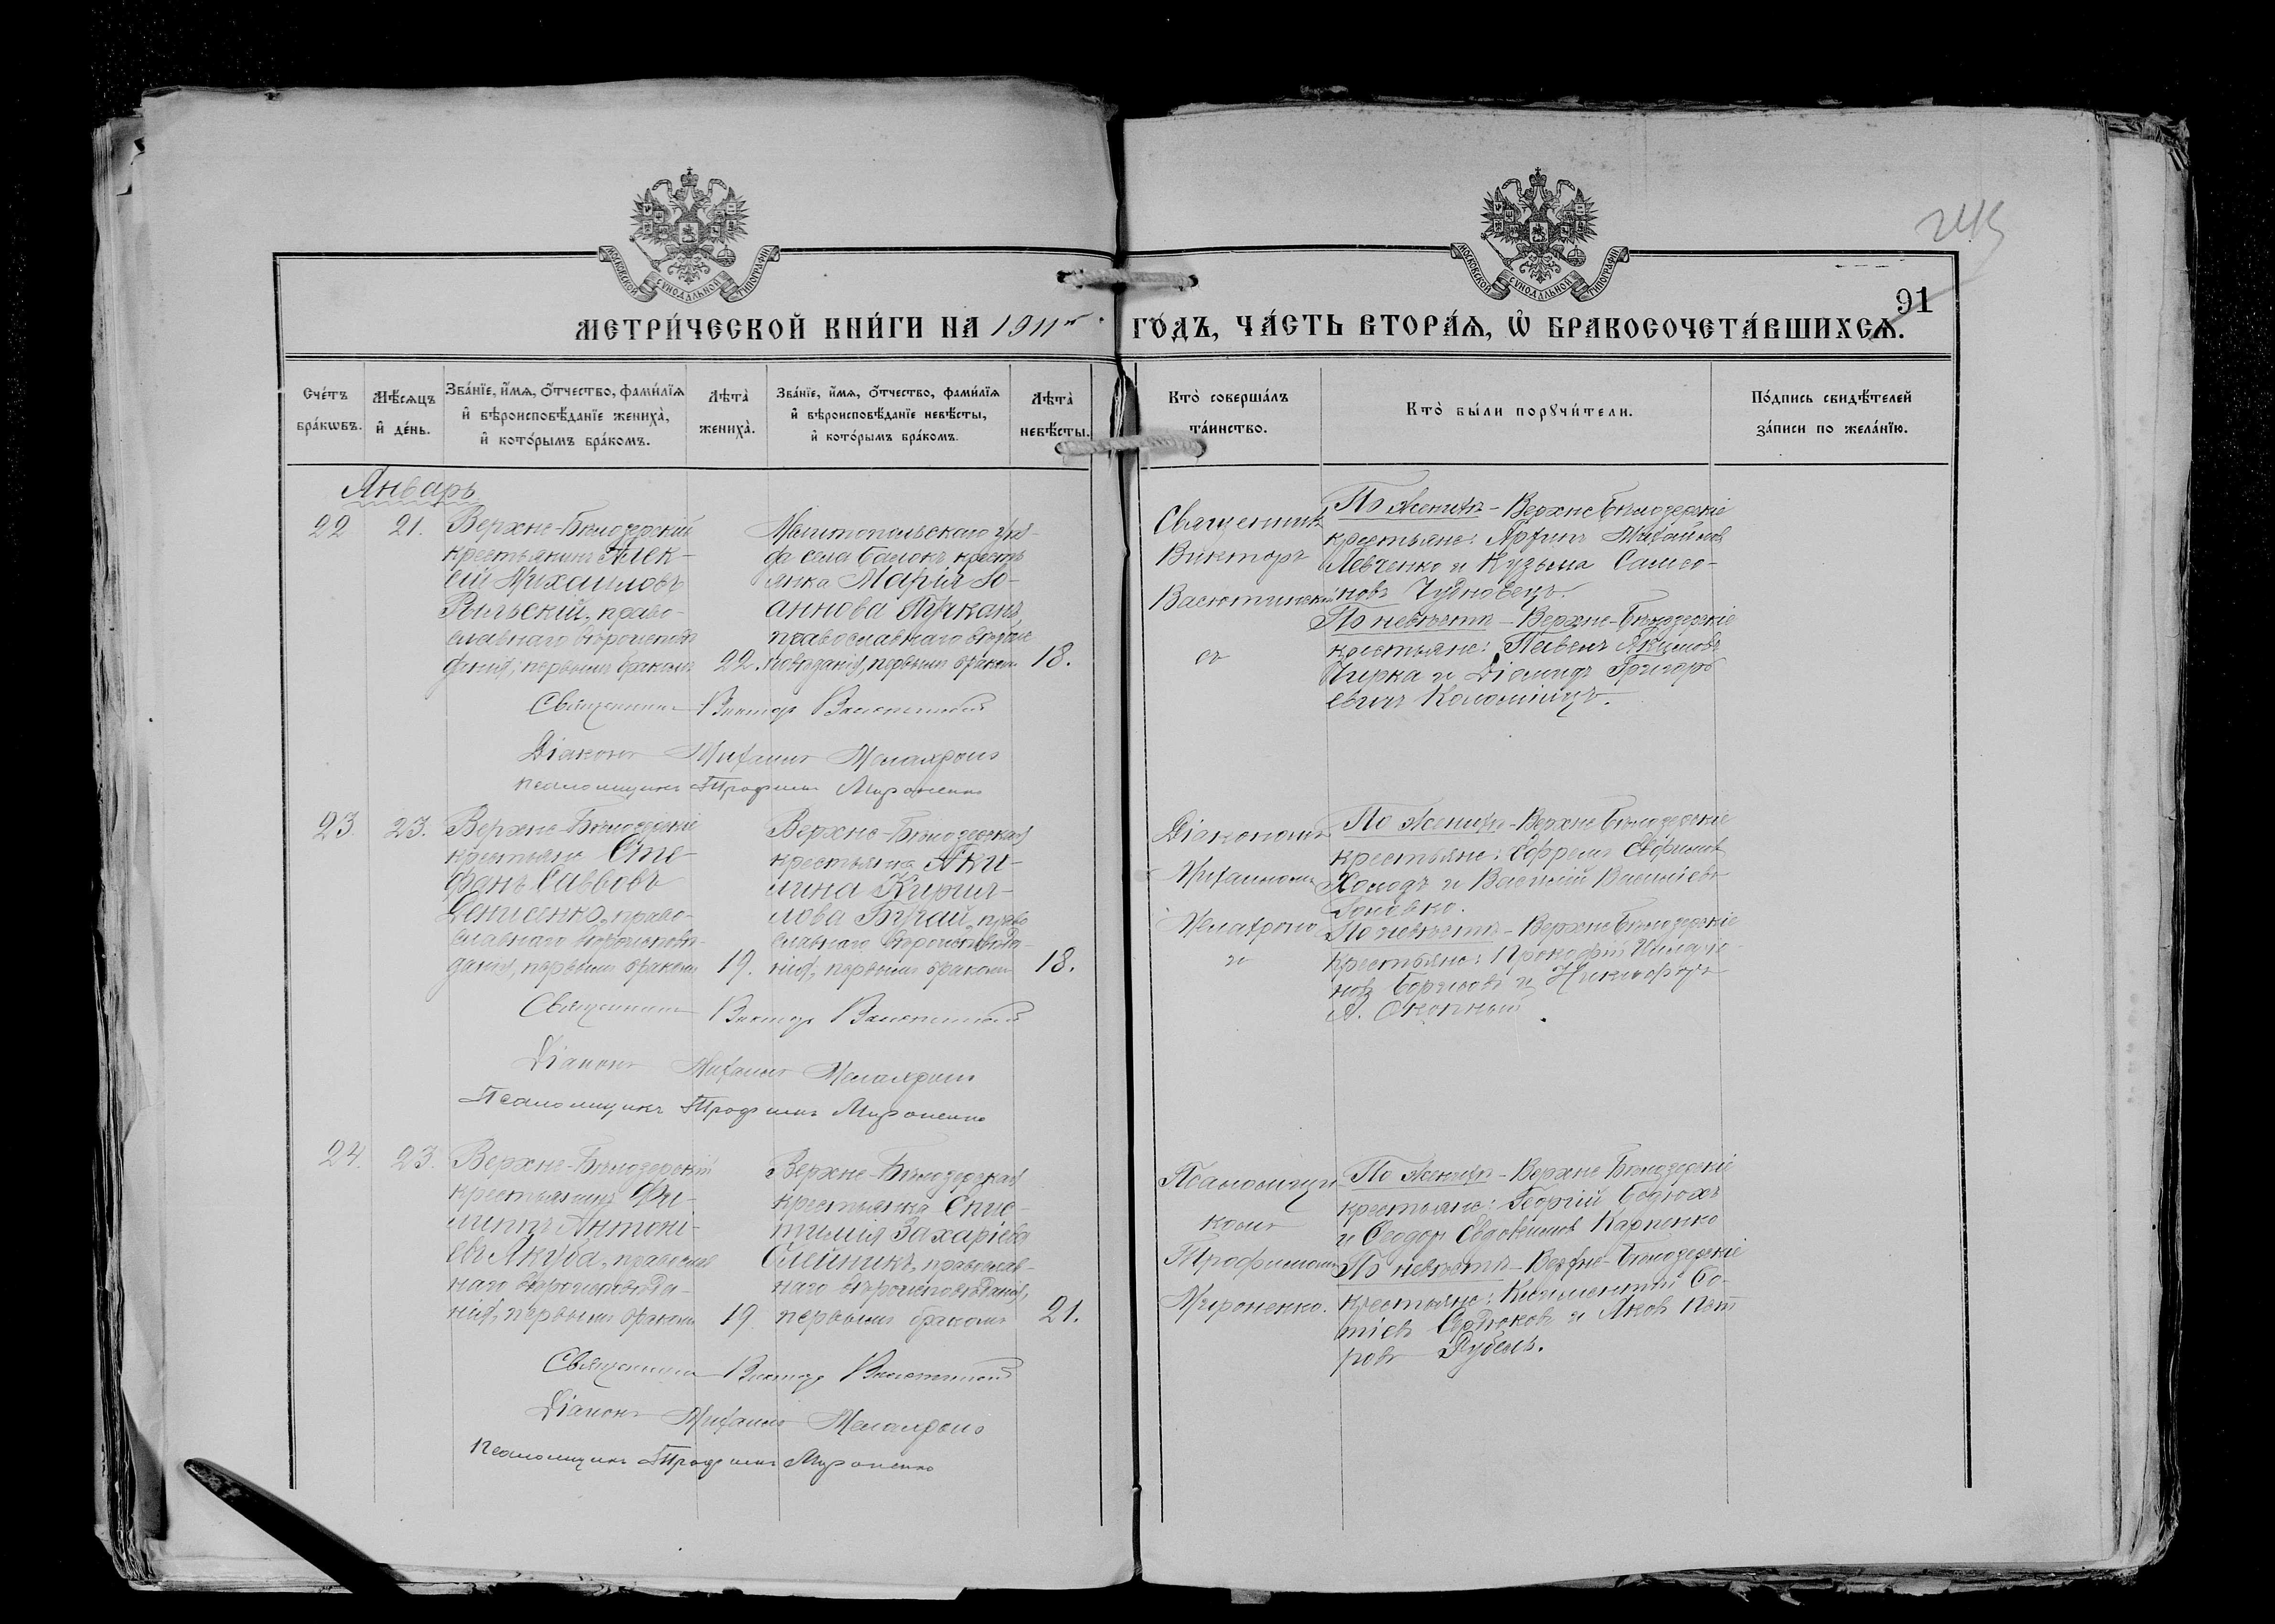 МОСКОВСКОЙ СУНОДАЛЬНОЙ ТИПОГРАФІИ
МОСКОВСКОЙ СУНОДАЛЬНОЙ ТИПОГРАФІИ
91
МЕТРИ́ЧЕСКОЙ КНИ́ГИ НА 1911й ГО́ДЪ, ЧА́СТЬ ВТОРА́Ѧ, Ѡ БРАКОСОЧЕТА́ВШИХСѦ.
Сче́тъ бра́кѡвъ.
Мѣ́сѧцъ и҆ де́нь.
Зва́нїе, и҆́мѧ, ѻ҆́тчество, фами́лїѧ и҆ вѣроисповѣ́данїе жениха̀, и҆ кото́рымъ бра́комъ.
Лѣта̀ жениха̀.
Зва́нїе, и҆́мѧ, ѻ҆́тчество, фами́лїѧ и҆ вѣроисповѣ́данїе невѣ́сты, и҆ кото́рымъ бра́комъ.
Лѣта̀ невѣ́сты.
Кто̀ соверша́лъ та́инство.
Кто̀ бы́ли порꙋчи́тели.
По́дпись свидѣ́телей за́писи по жела́нїю.
Январь
22
21.
Верхне-Бѣлозерскій
крестьянинъ Алек-
сій Михаиловъ
Рыльскій, право-
славнаго вѣроисповѣ
данія, первымъ бракомъ
22.
Мелитопольскаго уѣз-
да села Балокъ кресть
янка Марія Іо-
аннова
православнаго вѣроис
повѣданія, первымъ бракомъ
18.
Священникъ
Викторъ
Васютинскій
съ
По женихѣ - Верхне Бѣлозерскіе
крестьяне: Михайловъ
Левченко и Кузьма Самсо-
новъ Чудновецъ.
По невѣстѣ - Верхне-Бѣлозерскіе
крестьяне: Павелъ Акимовъ
и Діомидъ Григорь
евичъ Коломіецъ.
Священникъ Викторъ Васютинскій
Діаконъ Михаилъ
псаломщикъ Трофимъ Мироненко
23.
23.
Верхне-Бѣлозерскіе
крестьяне Сте-
фанъ Саввовъ
Денисенко, право-
славнаго вѣроисповѣ-
данія, первымъ бракомъ
19.
Верхне-Бѣлозерская
крестьянка Аки-
лина Кирил-
лова Бугай, право
славнаго вѣроисповѣда-
нія, первымъ бракомъ
18.
Діакономъ
Михаиломъ
и
По женихѣ - Верхне Бѣлозерскіе
крестьяне: Ефремъ
Холодъ и Василій Васильевъ
Головко.
По невѣстѣ - Верхне Бѣлозерскіе
крестьяне: Прокофій
новъ и Никифоръ
А.
Священникъ Викторъ Васютинскій
Діаконъ Михаилъ
Псаломщикъ Трофимъ Мироненко
24.
23.
Верхне-Бѣлозерскій
крестьянинъ Фи-
липпъ Антоні-
евъ Якуба, православ
наго вѣроисповѣда-
нія, первымъ бракомъ
19.
Верхне-Бѣлозерская
крестьянка Епис-
тимія Захаріева
Олейникъ, православ-
наго вѣроисповѣданія,
первымъ бракомъ
21.
Псаломщи-
комъ
Трофимомъ
Мироненко.
По женихѣ - Верхне Бѣлозерскіе
крестьяне: Георгій Бедюхъ
и Ѳеодоръ Евдокимовъ Карпенко
По невѣстѣ - Верхне-Бѣлозерскіе
крестьяне: Климентій
Сердюковъ и Яковъ Пет
ровъ
Священникъ Викторъ Васютинскій
Діаконъ Михаилъ
псаломщикъ Трофимъ Мироненко